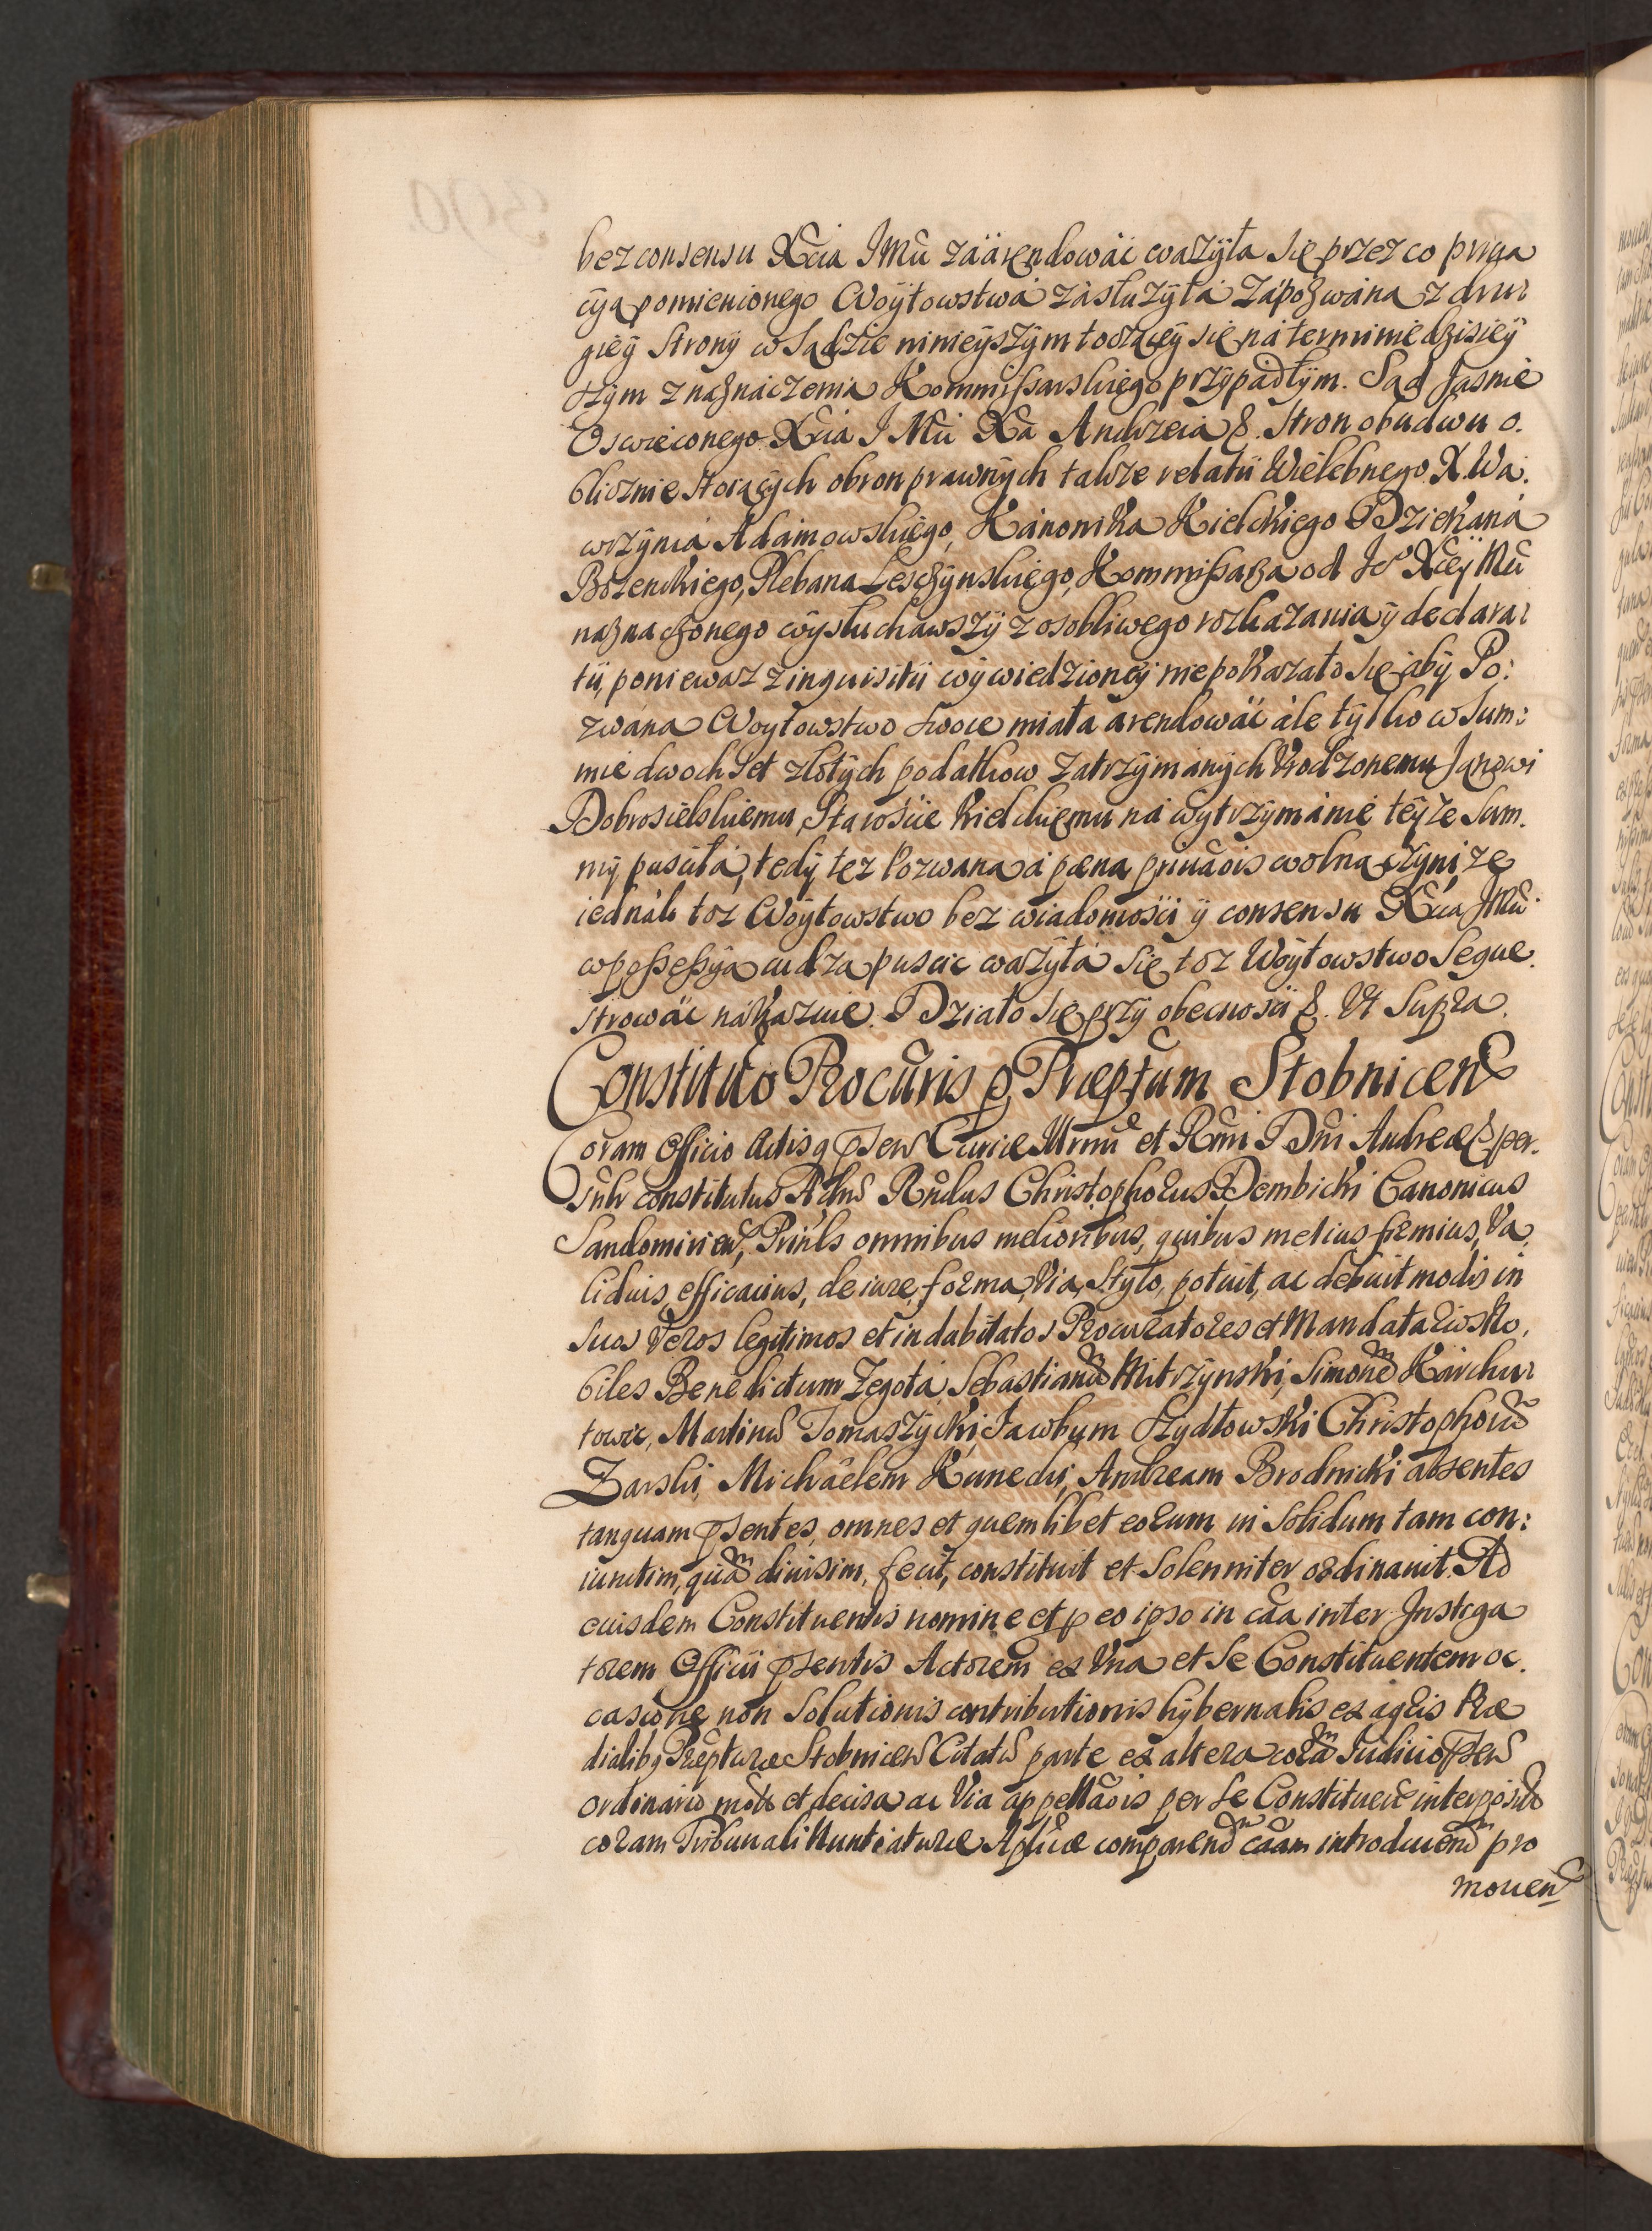 bez consensu Xcia JMci zaarendować ważyła się przez co priva
cyą pomienionego Woytowstwa zasłużyła zapozwaną z dru:
giey strony w Sądzie ninieyszym toczącey się na terminie dzisiey
szym z naznaczenia Kommissarskiego przypadłym. Sąd Jasnie
Oswieconego Xcia JMci Xa Andrzeia &. stron obudwu o.
blicznie stoiących obron prawnych także relatii Wielebnego X. Wa.
wrzynia Adamowskiego, Kanonika Kielckiego Dziekana
Bozenckiego, Plebana Leszczynskiego, Kommissarza od Jo Xcey Mci
naznaczonego wysłuchawszy z osobliwego rozkazania y declara:
tii, poniewasz z inquisitii wywiedzioney nie pokazało się aby Po:
zwana Woytowstwo swoie miała arendować ale tylko w sum:
mie dwoch set złotych podatkow zatrzymanych Urodzonemu Janowi
Dobrosielskiemu, Staroście Kielckiemu na wytrzymanie teyże Sum.
my pusciła, tedy tez Pozwaną á pœna priuãois wolną czyni, ze
iednak toz Woytowstwo bez wiadomości y consensu Xcia JMci
w possessyą cudzą puscic ważyła się toz Woytowstwo seque.
strować nakazuie. Działo się przy obecności &. Ut Supra.
Constitutio Procuris p Præpturam Stobnicen
Coram Officio Actisq pnsen Curiæ Illrmi et Rmi Dni Andreæ & per.
snlr constitutus Adms Rndus Christophorus Dembicki Canonicus
Sandomirien, Prinls omnibus melioribus, quibus melius firmius, Va.
lidius, efficacius, de iure, forma, Via, Stylo, potuit, ac debuit modis in
suos Veros legitimos et indubitatos Procuratores et Mandatarios No.
biles Benedictum Zegota, Sebastianum Mitrzynski, Simonem Karchu:
towic, Martinum Tomaszycki, Jacobum Szydłowski Christophorum
Zarski, Michaelem Kunecki, Andream Brodnicki absentes
tanquam pnsentes, omnes et quemlibet eorum in solidum tam con:
iunctim, quam diuisim, fecit, constituit et solenniter ordinauit. Ad
euisdem Constituentis nomine et p eo ipso in cãa inter Instiga
torem Officii pnsentis Actorem ex Una et se Constituentem oc.
casione non solutionis contributionis hybernalis ex agris Præ
dialibq Præpturæ Stobnicen Citatum parte ex altera coram Iudicio pnsen
ordinario mota et decisa ac Via appellãois per se Constituen interposita
coram Tribunali Nuntiaturæ Aplicæ comparend cãam introducend pro
mouen